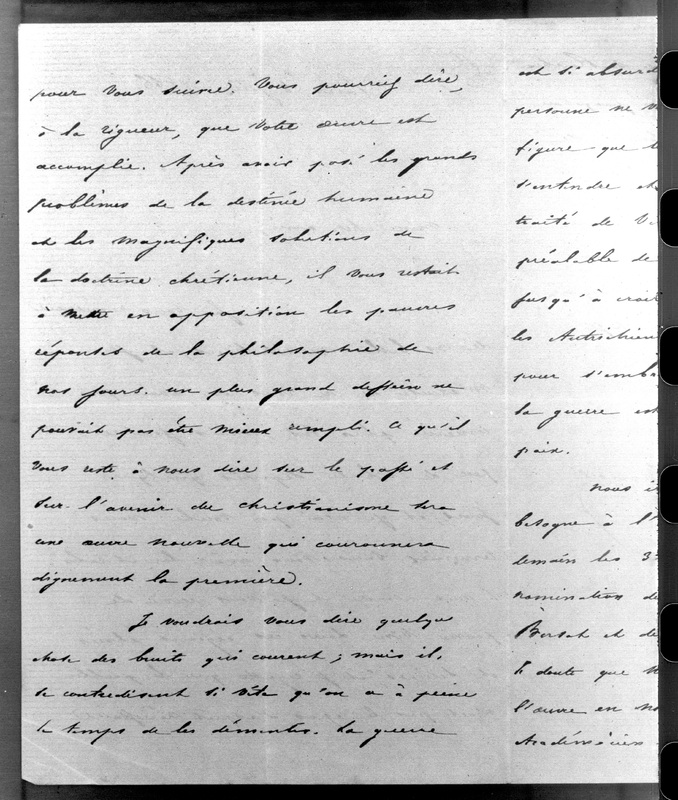 pour vous suivre. Vous pourriez dire,
à la rigueur, que votre œuvre est
accomplie. Après avoir posé les grands
problèmes de la destinée humaine
et les magnifiques solutions de
la doctrine chrétienne, il vous restait
à mettre en opposition les pauvres
réponses de la philosophie de
nos jours. un plus grand dessein ne
pouvait pas être mieux rempli. Ce qu'il
vous reste à nous dire sur le passé et
sur l'avenir du christianisme sera
une œuvre nouvelle qui couronnera
dignement la première.
Je voudrais vous dire quelque
chose des bruits qui courent ; mais ils
se contredisent si vite qu'on a à peine
le temps de les démentir. La guerre
est si absurd
personne ne
figure que
s'entendre
traité de
préalable de
jusqu'à croir
les Autrichien
pour s'emba
la guerre est
paix.
nous
besogne à l'
demain les
nomination de
Bersot et de
Je doute que
l'œuvre en
Académicien